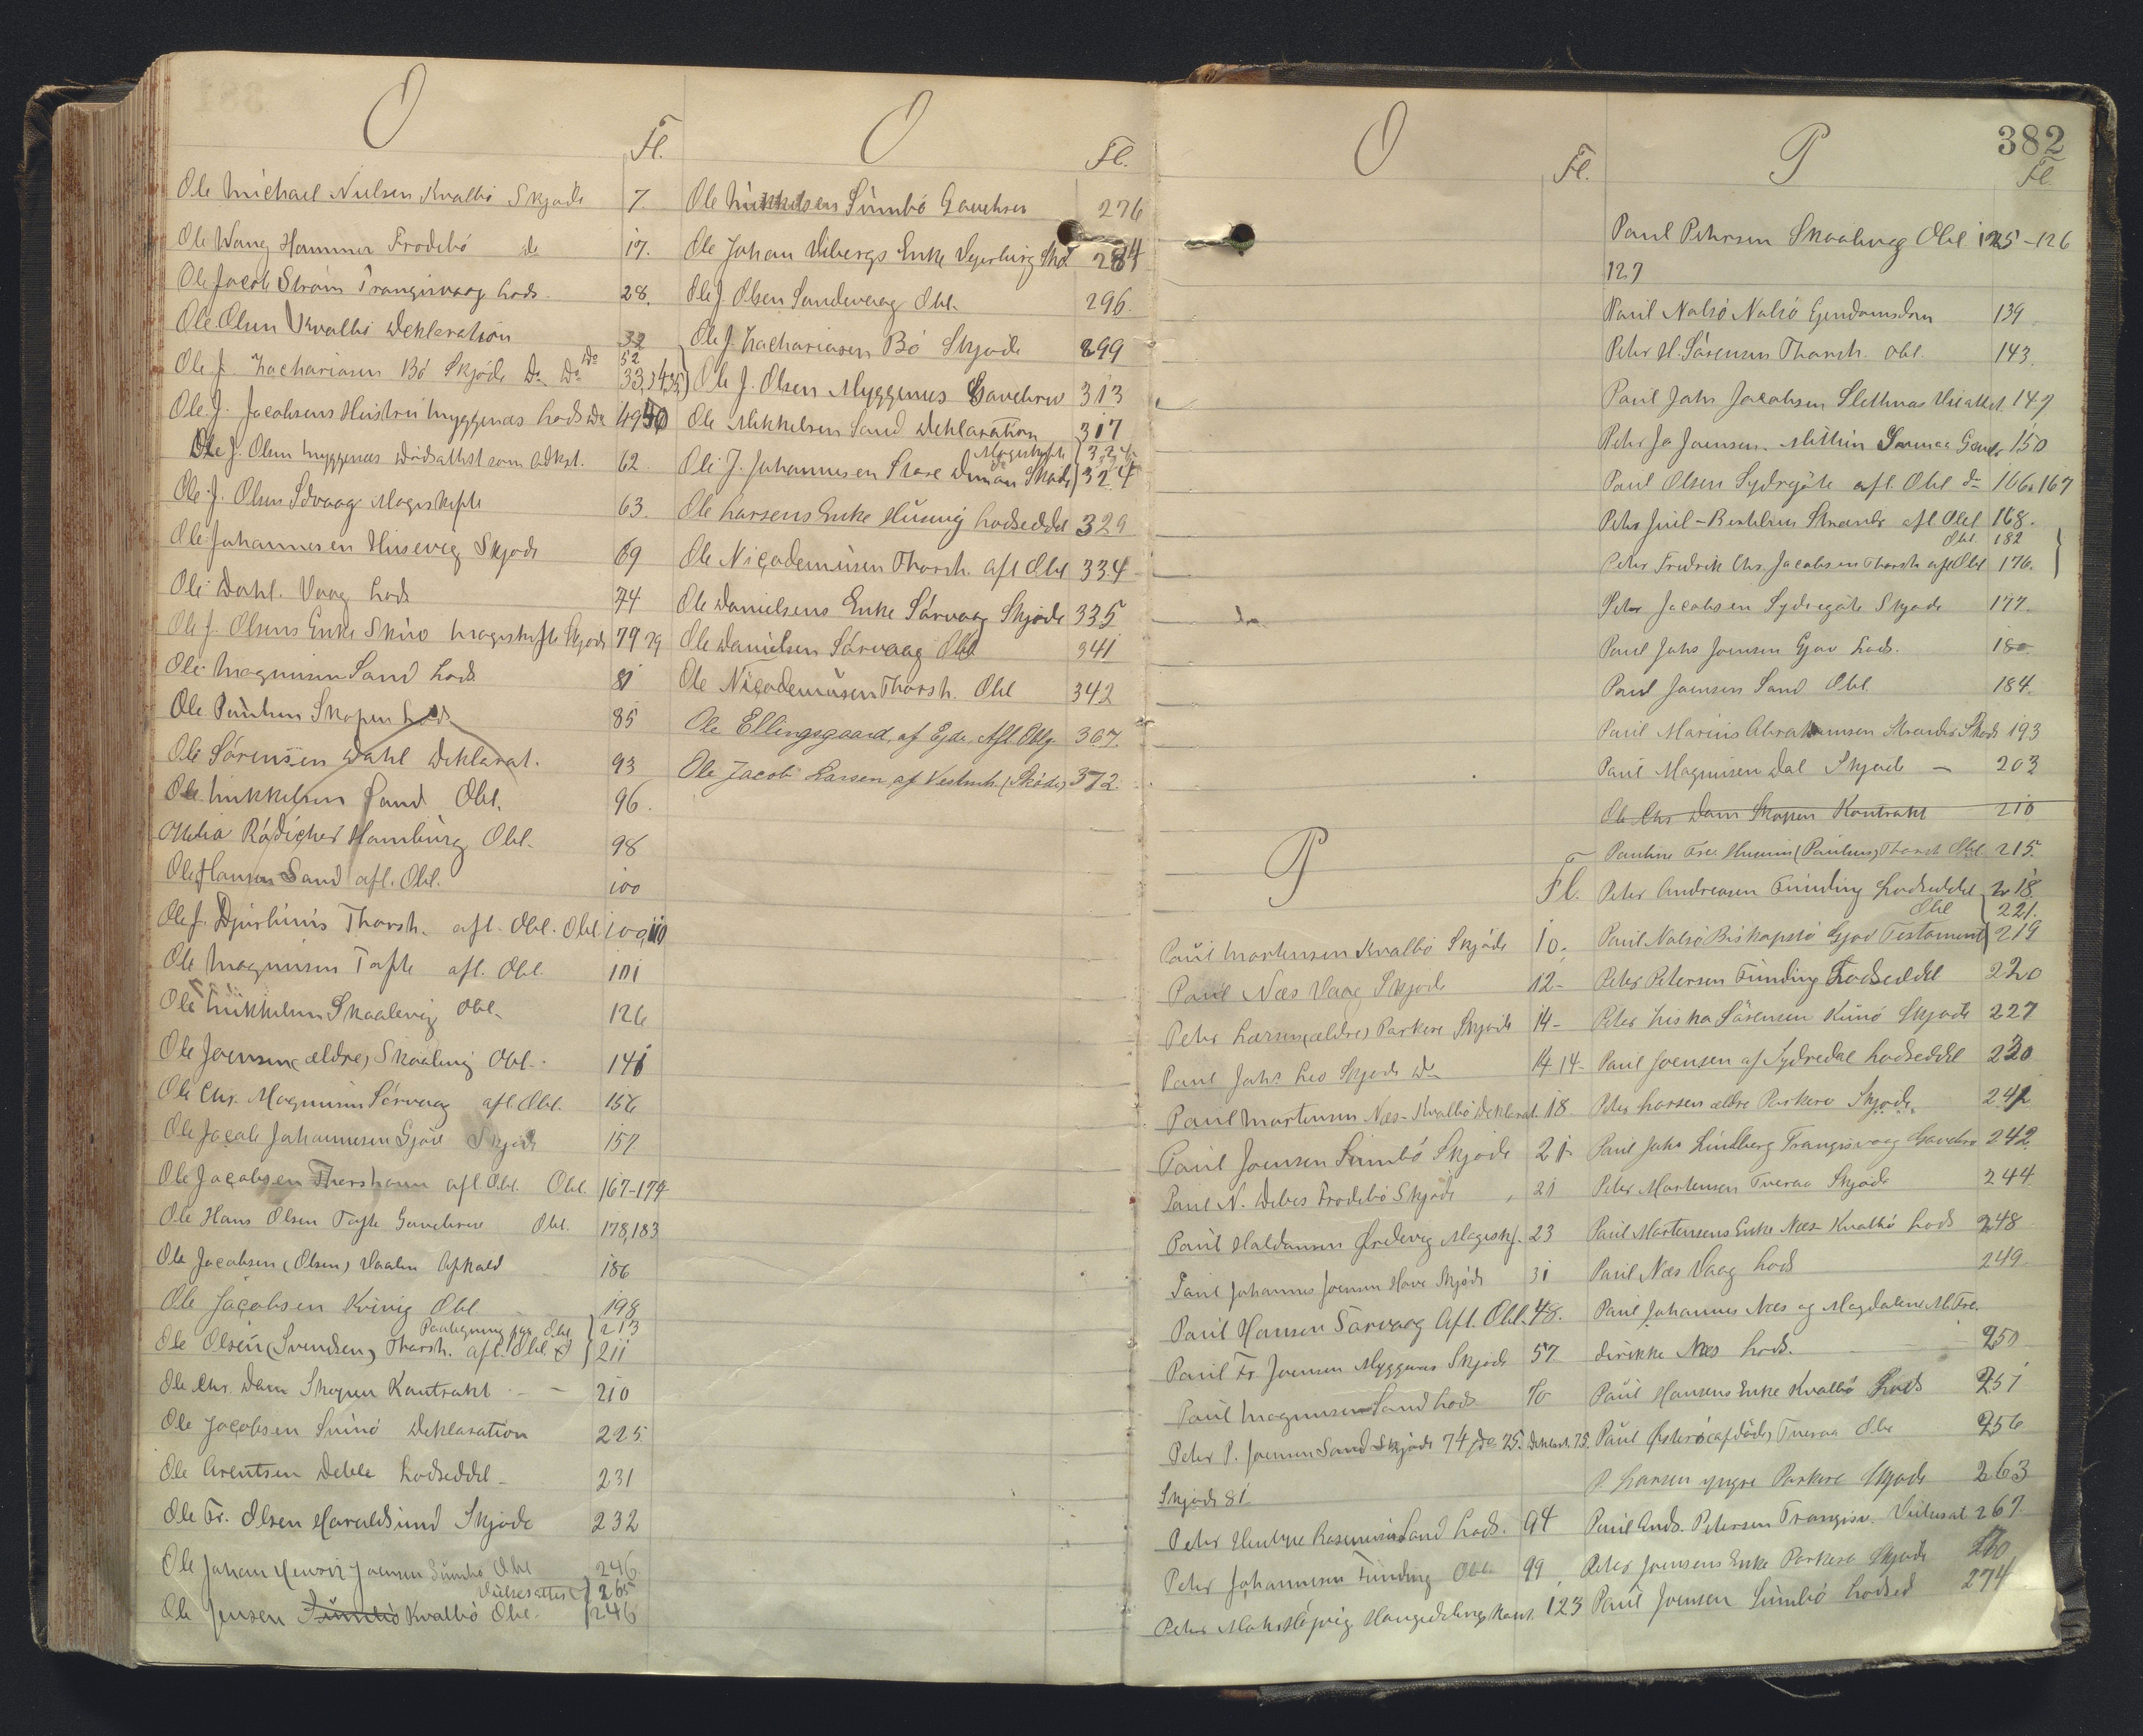 O
Fl.
Ole Michael Nielsen Kvalbö Skjöde 7.
Ole Wang Hammer Frodebö do 17.
Ole Jacob Ström Trangisvaag Lods. 28.
Ole Olsen Kvalbö Deklaration 32
Do 52
Ole J. Zachariasen Bö Skjöde Do Do 33,34,35
Ole J. Jacobsens Hüstrü Myggenæs Lods Do 49 50
Ole J. Olsen Myggenæs Dödsattest som Adkst. 62.
Ole J. Olsen Sdvaag Mageskifte 63.
Ole Johannesen Hüsevig Skjøde 69
Ole Dahl. Vaag Lods 74
Ole J. Olsens Enke Sküo Mageskifte Skjøde 79 79
Ole Magnüsen Sand Lods 81
Ole Poülsen Skopen Lods 85
Ole Sörensen Dahl Deklarat. 93
Ole Mikkelsen Sand Obl. 96.
Otilia Rödicher Hambürg Obl. 98
Ole Hansen Sand afl. Obl. 100
Ole J. Djürhüüs Thorsh. afl. Obl. Obl 109,110
Ole Magnüsen Tofte afl. Obl. 101
Ole Mikkelsen Skaalevig Obl. 126
Ole Joensen (ældre) Skaalevig Obl. 141
Ole Chr. Magnüsen Sörvaag afl. Obl. 156
Ole Jacob Johannesen Gjov Skjøde 157
Ole Jacobsen Thorshavn afl. Obl. Obl. 167-174
Ole Hans Olsen Tofte Gavebrev Obl. 178,183
Ole Jacobsen (Olsen) Vaalen Afkald 186
Ole Jacobsen Kvivig Obl. 198
Paategning paa Obl. 213
Ole Olsen (Svendsen) Thorsh. afl. Obl. 211
Ole Chr. Dam Skopen Kontrakt - 210
Ole Jacobsen Svinö Deklaration 225
Ole Arentsen Deble Lodseddel - 231
Ole Fr. Olsen Haraldsünd Skjøde 232
Ole Johan Henrik Joensen Sümbö Obl 246
Vielsesattest 265
Ole Jensen Sümbö Kvalbö Obl. 246
O
Fl.
Ole Mikkelsen Sümbö Gavebrev 276
Ole Johan Vibergs Enke Vejerbürg Skd 284
Ole J. Olsen Sandevaag Obl. 296.
Ole J. Zachariasen Bö Skjøde 299
Ole J. Olsen Myggenæs Gavebrev 313
Ole Mikkelsen Sand Deklaration 317
Mageskifte 324
Ole J. Johannesen Store Dimon Skøde 324
Ole Larsens Enke Hüsevig Lodseddel 329
Ole Nicodemüsen Thorsh. afl Obl 334
Ole Danielsens Enke Sörvaag Skjøde 335
Ole Danielsen Sörvaag Obl 341
Ole Nicodemüsen Thorsh. Obl 342
Ole Ellingsgaard, af Ejde, Afl. Oblg. 367.
Ole Jacob Larsen af Vestmh. (Skøde) 372.
O
Fl.
P
Fl.
Paül Mortensen Kvalbö Skjöde 10.
Paül Næs Vaag Skjøde 12-
Peter Larsen (ældre) Porkere Skjøde 14-
Paül Johs Leo Skjøde Do 14 14-
Paül Mortensen Næs-Kvalbö Deklarat. 18.
Paül Joensen Sümbö Skjøde 21
Paül N. Debes Frodebö Skjøde 21
Paül Haldansen Øredevig Magesk. 23
Paül Johannes Joensen Hove Skjøde 31
Paül Hansen Sörvaag Afl. Obl. 48.
Paül Fr. Joensen Myggenæs Skjøde 57
Paül Magnüsen Sand Lods 70
Peter P. Joensen Sand Skjøde 74, do 75. Deklarat. 75.
Skjøde 81
Peter Rasmüsen Sand Lods. 94
Peter Johannesen Fünding Obl. 99
Peter Höjvig Kont. 123
382
P
Fl.
Paül Petersen Skaalevig Obl 125-126
127
Paül Nolsö Nolsö Ejendomsdom 139
Peter H. Sörensen Thorsh. Obl. 143.
Paül Johs Jacobsen Slettnæs 147
Peter Jo Joensen. Gaveb. 150
Paül Olsen Sydregöte afl. Obl do 166,167
Peter Jüül-Restorff Strande afl Obl 168.
Obl. 182
Peter Fredrik Chr. Jacobsen Thorsh afl Obl 176.
Peter Jacobsen Sydregöte Skjøde 177.
Paül Johs Joensen Gjov Lods. 180
Paül Joensen Sand Obl 184.
Paül Mariüs Abrahamsen Skøde 193
Paül Magnüsen Dal Skjøde - 203
Ole Chr Dam Skopen Kontrakt 210
Pauline Fre. (Paülsen) Thorsh Obl. 215.
Peter Andreasen Fünding Lodseddel 218
Obl 221.
Paül Nolsö Biskopstö Gjov Testament 219
Peter Petersen Fünding Lodseddel 220
Peter Sörensen Künö Skjøde 227
Paül Joensen af Sydredal Lodseddel 230
Peter Larsen ældre Porkere Skjøde. 241
Paül Johs Lindberg Trangisvaag Gavebrev 242
Peter Mortensen Tveraa Skjøde 244
Paül Mortensens Enke Næs Kvalbö Lods 248
Paül Næs Vaag Lods 249.
Paül Johannes Næs og Magdalene M. Fre-
derikke Næs Lods. 250
Paül Hansens Enke Kvalbö Lods 251
Paül Østerö (afdöde) Tveraa Obl 256
P. Larsen yngre Porkere Skjøde 263
Paül Ands. Petersen Trangisv. 267.
Peter Joensens Enke Porkere Skjøde 270
Paül Joensen Sümbö Lodsed 274